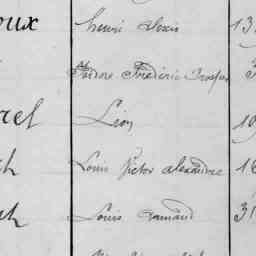 oux henri Louis 13
Isidore Frédéric Prosper
rel Léon 19
th Louis Victor Alexandre 16
th Louis Armand 31